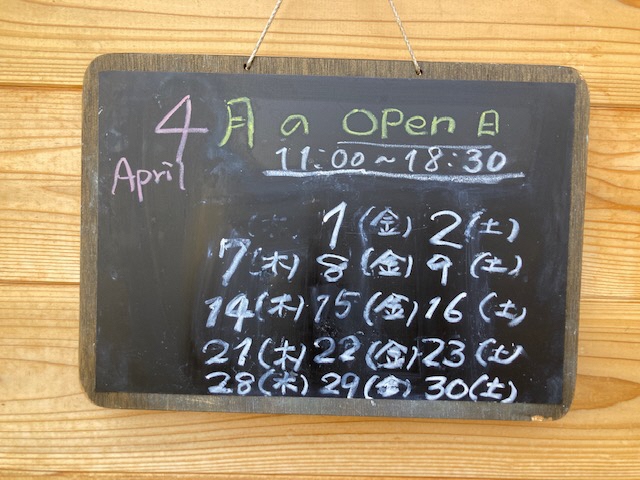 4月の OPen日
April
11:00～18:30
1(金) 2(土)
7(木) 8(金) 9(土)
14(木) 15(金) 16(土)
21(木) 22(金) 23(土)
28(木) 29(金) 30(土)